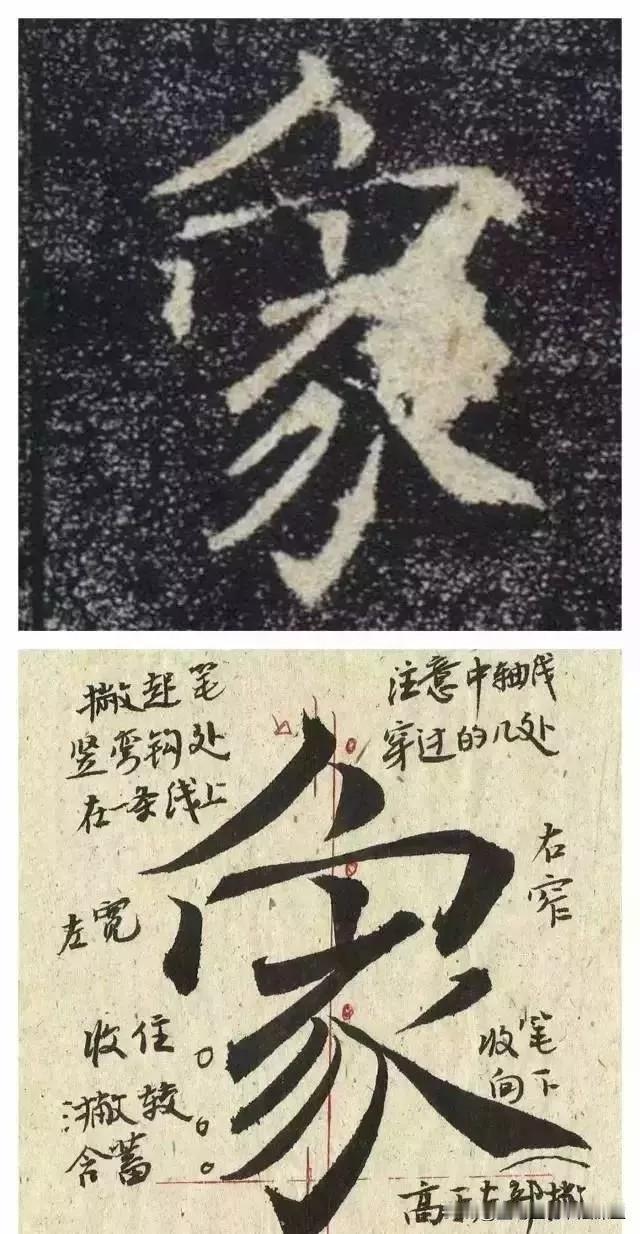 象
撇起笔
竖弯钩处
在一条线上
注意中轴线
穿过的几处
象
左宽
右窄
收住
撇较
含蓄
收笔
向下
高于左部撇